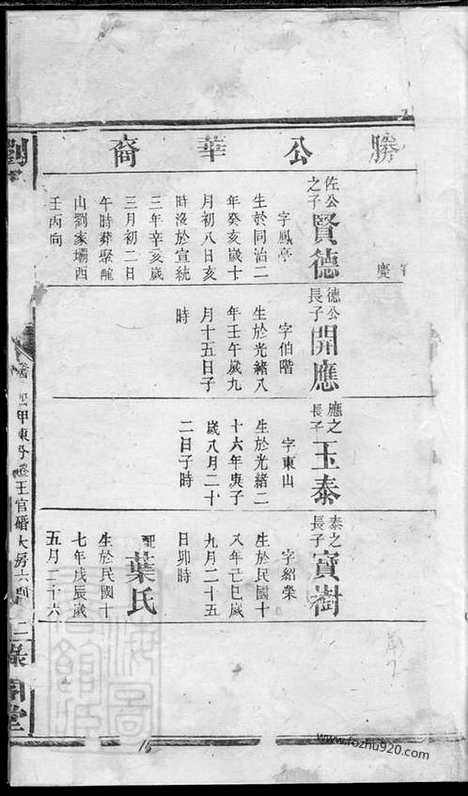 勝公華裔
佐公之子賢德
字鳳亭
生於同治二
年癸亥歲十
月初八日亥
時沒於宣統
三年辛亥歲
三月初二日
午時葬聚龍
山劉家壩酉
壬丙向
德公長子開應
字伯階
生於光緒八
年壬午歲九
月十五日子
時
應之長子玉泰
字東山
生於光緒二
十六年庚子
歲八月二十
二日子時
泰之長子寶樹
字紹榮
生於民國十
八年己巳歲
九月二十五
日卯時
配葉氏
生於民國十
七年戊辰歲
五月二十六
劉
甲東分遷王官礄大房六
堂
16
www.fozhu920.com